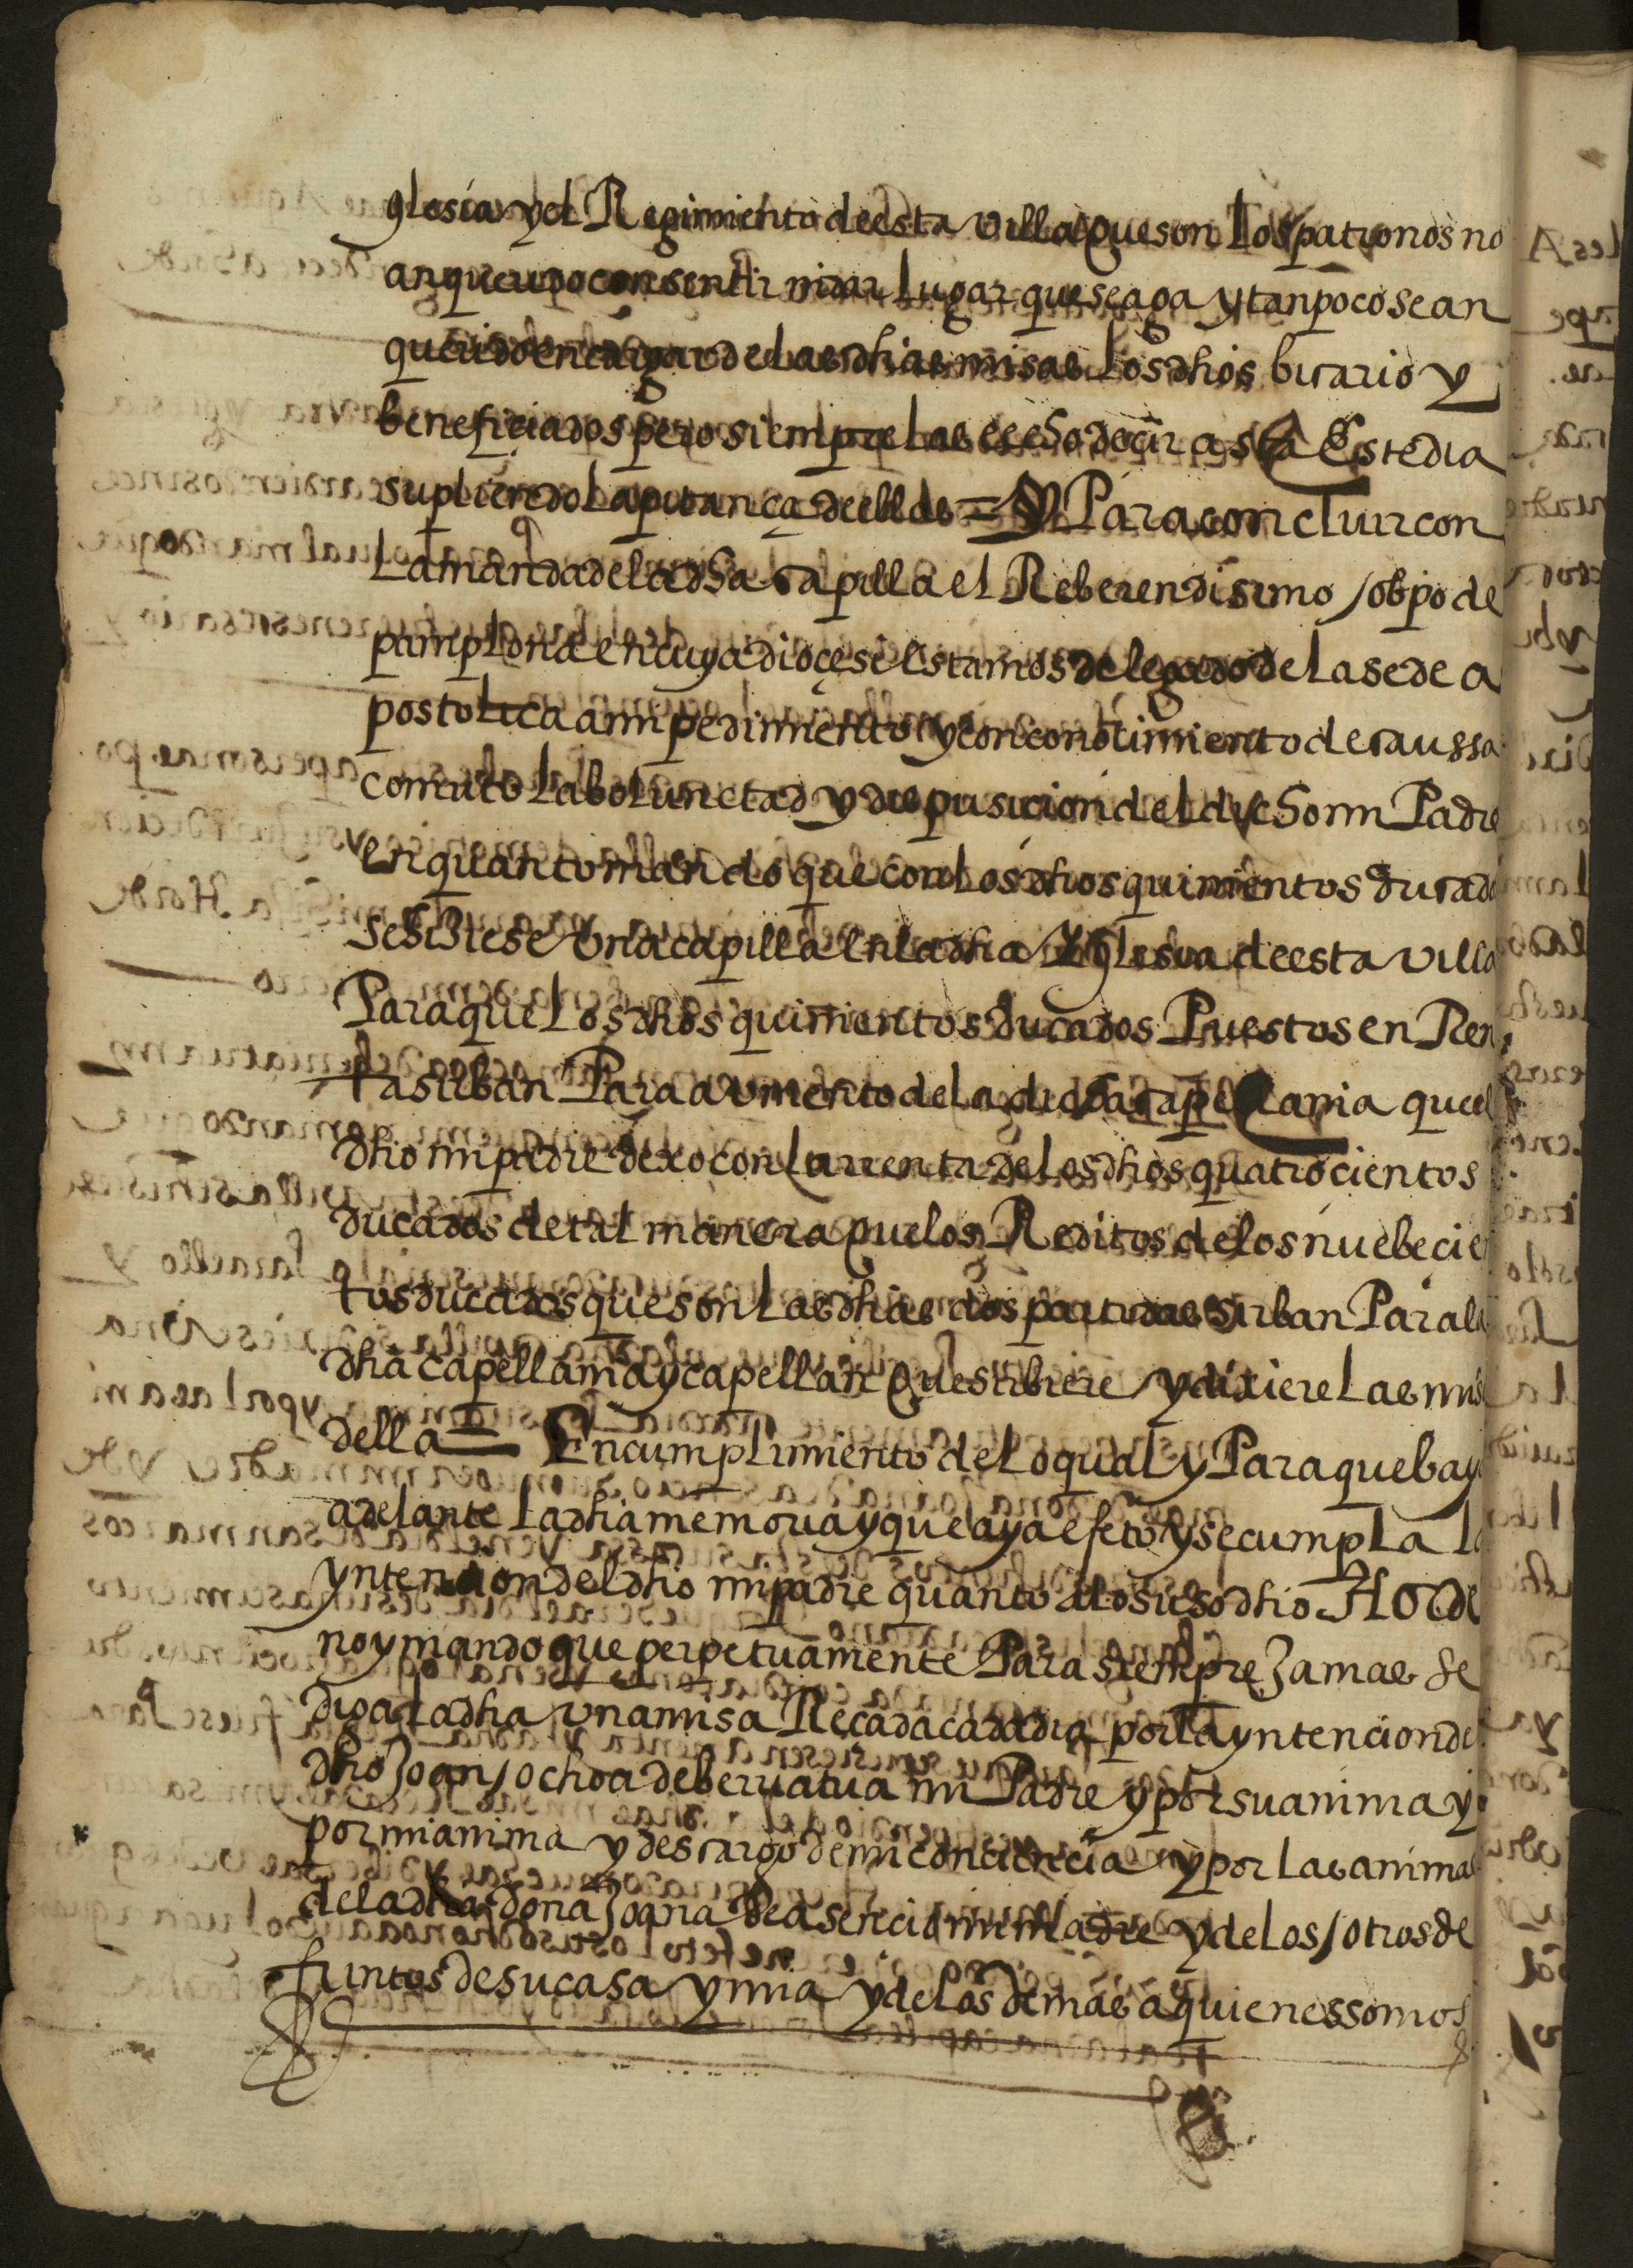 yglesia y el Regimiento de esta villa que son los patronos no
an querido consentir ni dar lugar que se aga y tanpoco se an
querido encargar de las dhas misas los dhos bicario y
beneficiados pero siempre las e echo decir asta Este dia
supliendo la pitança de ellas = Y Para concluir con
la manda de la dha capilla el Reberendisimo obpo de
pamplona en cuya dioçesi estamos delegado de la sede a
postolica a mi pedimiento y con conocimiento de caussa
comuto la boluntad y dispusicion del dicho mi Padre
en quanto mando que con los dhos quinientos ducados
se hiziese vna capilla en la dha yglesia de esta villa
Para que los dhos quinientos ducados Puestos en Ren
ta sirban Para aumento de la dicha capellania que el
dho mi padre dexo con la renta de los dhos quatrocientos
ducados de tal manera que los Reditos de los nuebecien
tos ducados que son las dhas dos partidas sirban Para la
dha capellania y capellan que sirbiere y dixiere las misas
della = En cumplimiento de lo qual y Para que baya
adelante la dha memoria y que aya efeto y se cumpla la
yntencion del dho mi padre quanto a lo susodho Horde
no y mando que perpetuamente Para siempre Jamas se
diga la dha vna misa Recada cada dia por la yntencion del
dho Joan ochoa de berriatua mi Padre y por su anima y
por mi anima y descargo de mi conciencia y por las animas
de la dha dona Joana de asencio mi madre y de los otros de
funtos de su casa y mia y de los demas a quienes somos